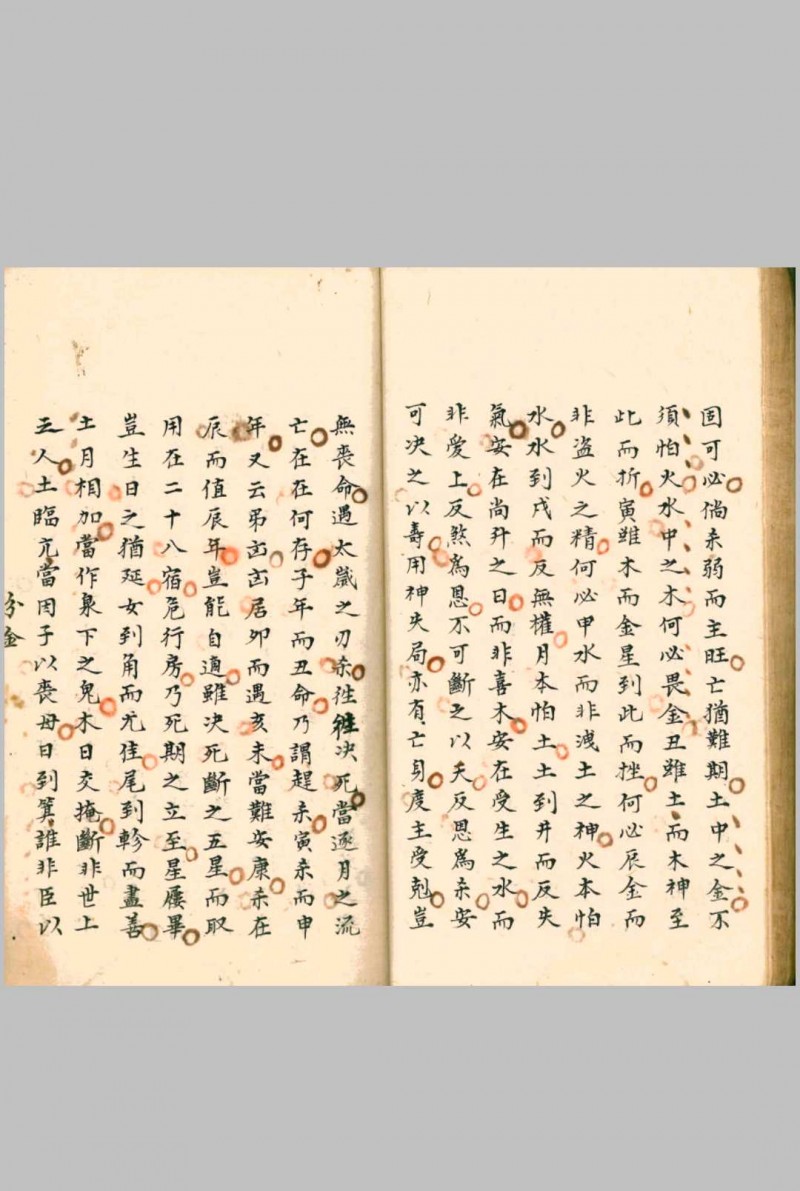 固可必倘亲弱而主旺亡猶難期土中之金不
須怕火水中之木何必畏金丑雖土而木神至
此而折寅雖木而金星到此而挫何必辰金而
非盗火之精何必申水而非洩土之神火本怕
水水到戌而反無權月本怕土土到井而反失
氣安在尚升之日而非喜木安在受生之水而
非愛上反煞為恩不可斷之以夭反恩為亲安
可决之以壽用神失局亦有亡身度主受剋豈
無喪命遇太歲之刃亲徃徃决死當逐月之流
亡在在何存子年而丑命乃謂趕亲寅亲而申
年又云吊凶凶居卯而遇亥未當難安康亲在
辰而值辰年豈能自適雖决死斷之五星而取
用在二十八宿危行房乃死期之立至星屨畢
豈生日之猶延女到角而尤佳尾到軫而盡善
土月相加當作泉下之鬼木日交掩斷非世上
之人土臨亢當因子以喪母日到箕誰非臣以
分金